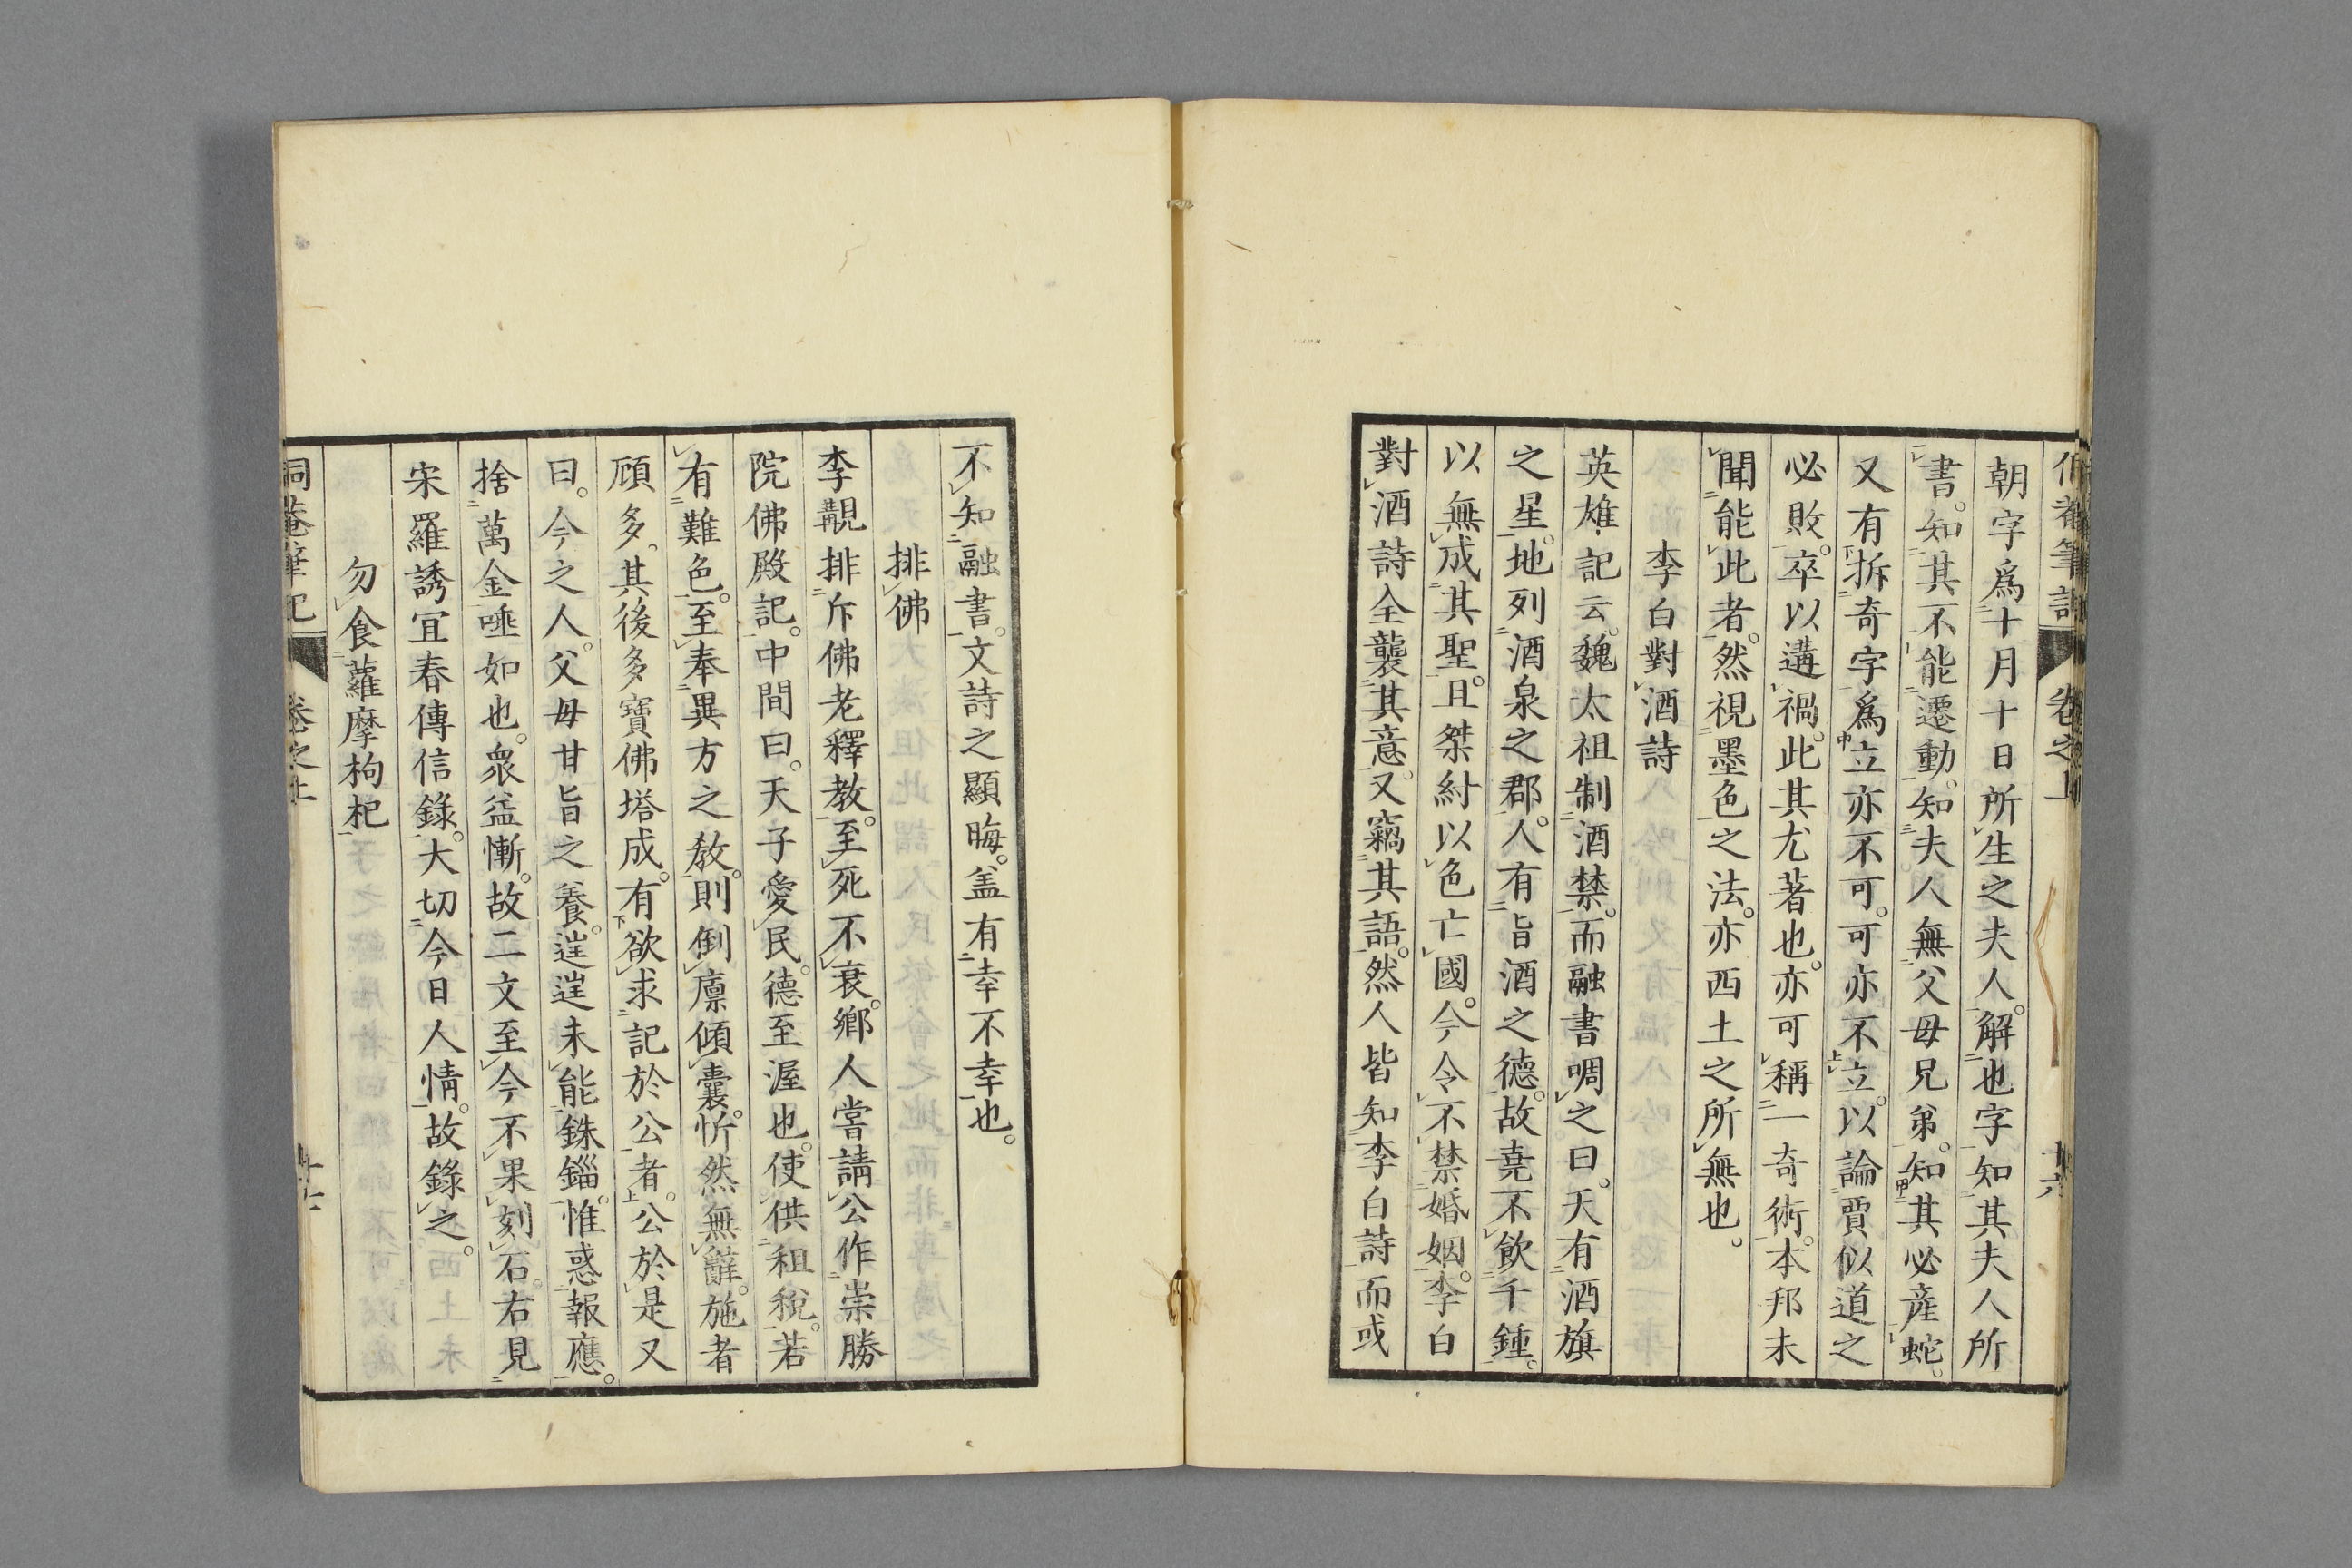 朝字爲十月十日所生之夫人。解也字知其夫人所
書。知其不能遷動。知夫人無父母兄弟。知其必産蛇。
又有拆奇字爲立亦不可。可亦不立。以論賈似道之
必敗。卒以遘禍。此其尤著也。亦可稱一奇術。本邦未
聞能此者。然視墨色之法。亦西土之所無也。
李白對酒詩
英雄記云。魏太祖制酒禁。而融書啁之曰。天有酒旗
之星。地列酒泉之郡。人有旨酒之德。故堯不飲千鍾。
以無成其聖。且桀紂以色亡國。今令不禁婚姻。李白
對酒詩全襲其意。又竊其語。然人皆知李白詩而或
不知融書。文詩之顯晦。盖有幸不幸也。
排佛
李覯排斥佛老釋教。至死不衰。鄉人嘗請公作崇勝
院佛殿記。中間曰。天子愛民。德至渥也。使供租稅。若
有難色。至奉異方之教。則倒廪傾囊。忻然無辭。施者
頋多。其後多寶佛塔成。有欲求記於公者。公於是又
曰。今之人。父母甘旨之養。逬逬未能銖錙。惟惑報應。
捨萬金唾如也。衆益慚。故二文至今不果刻石。右見
宋羅誘宜春傳信錄。大切今日人情。故錄之。
勿食蘿摩枸杞
筆記 卷之上 十六
侗菴筆記 卷之上